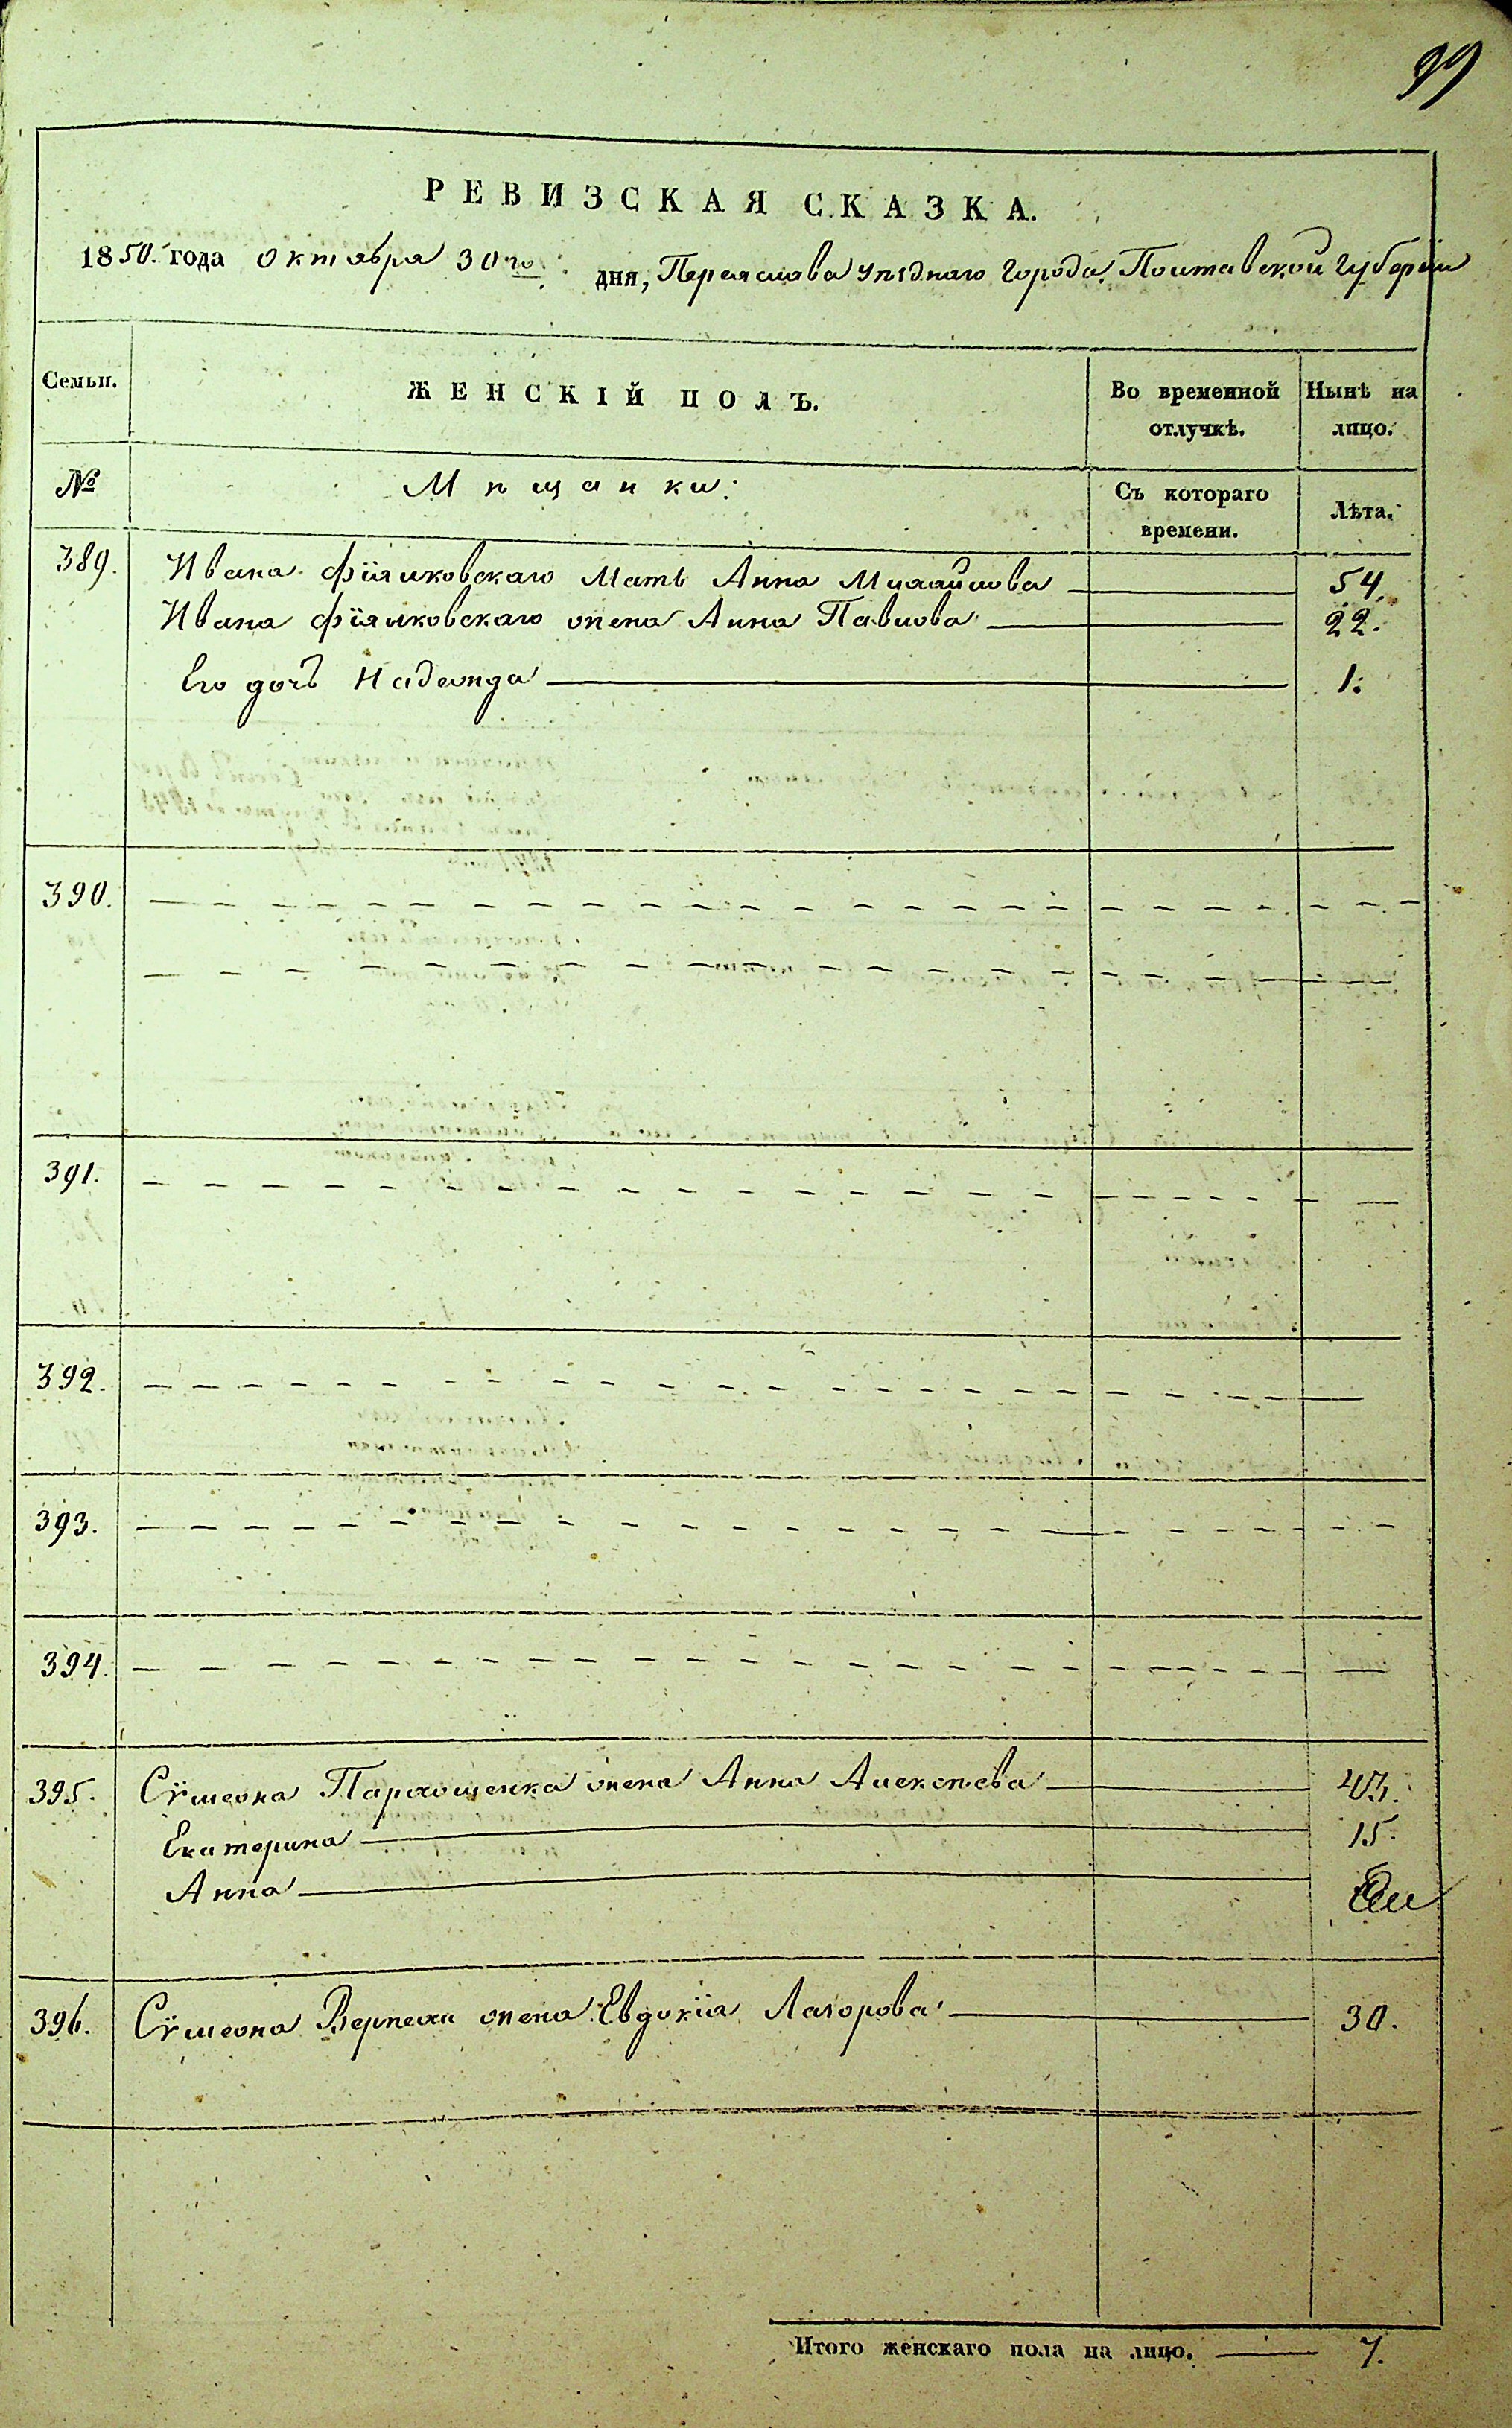 99
РЕВИЗСКАЯ СКАЗКА.
1850. года октября 30го дня, Переяслава уѣзднаго города Полтавской губерніи
Семьи. ЖЕНСКІЙ ПОЛЪ. Во временной отлучкѣ. Нынѣ на лицо.
№ Мѣщанки: Съ котораго времени. Лѣта.
389. Ивана Фіялковскаго мать Анна Михайлова 54.
Ивана Фіялковскаго жена Анна Павлова 22.
Его дочь Надежда 1.
390.
391.
392.
393.
394.
395. Сѵмеона Пархоменка жена Анна Алексѣева 43.
Екатерина 15.
Анна
396. Сѵмеона жена Евдокія Лазорова 30.
Итого женскаго пола на лицо. 7.